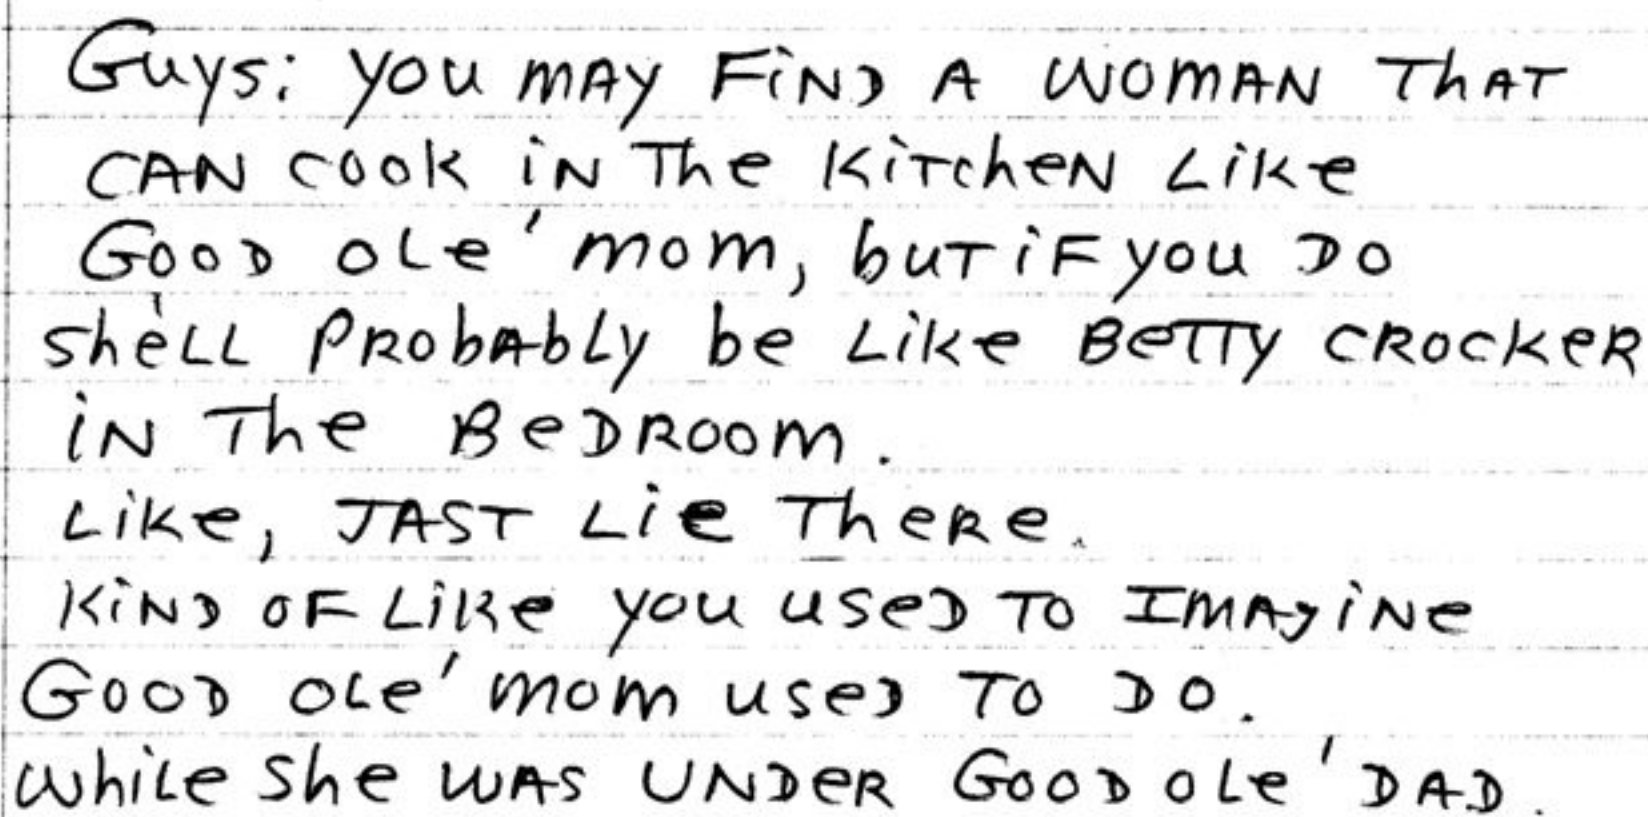 Guys: you mAy FiND A WOMAN ThAT
CAN cook iN The KiTcheN Like
GOOD oLe' mom, buT iF you DO
she'LL PRobAbLy be Like BeTTy CROckeR
iN The BeDROOm.
Like, JAST Lie TheRe.
KiND OF Like you useD TO IMAgiNe
GOOD OLe' mom useD TO DO.
While She WAS UNDeR GOOD OLe' DAD.